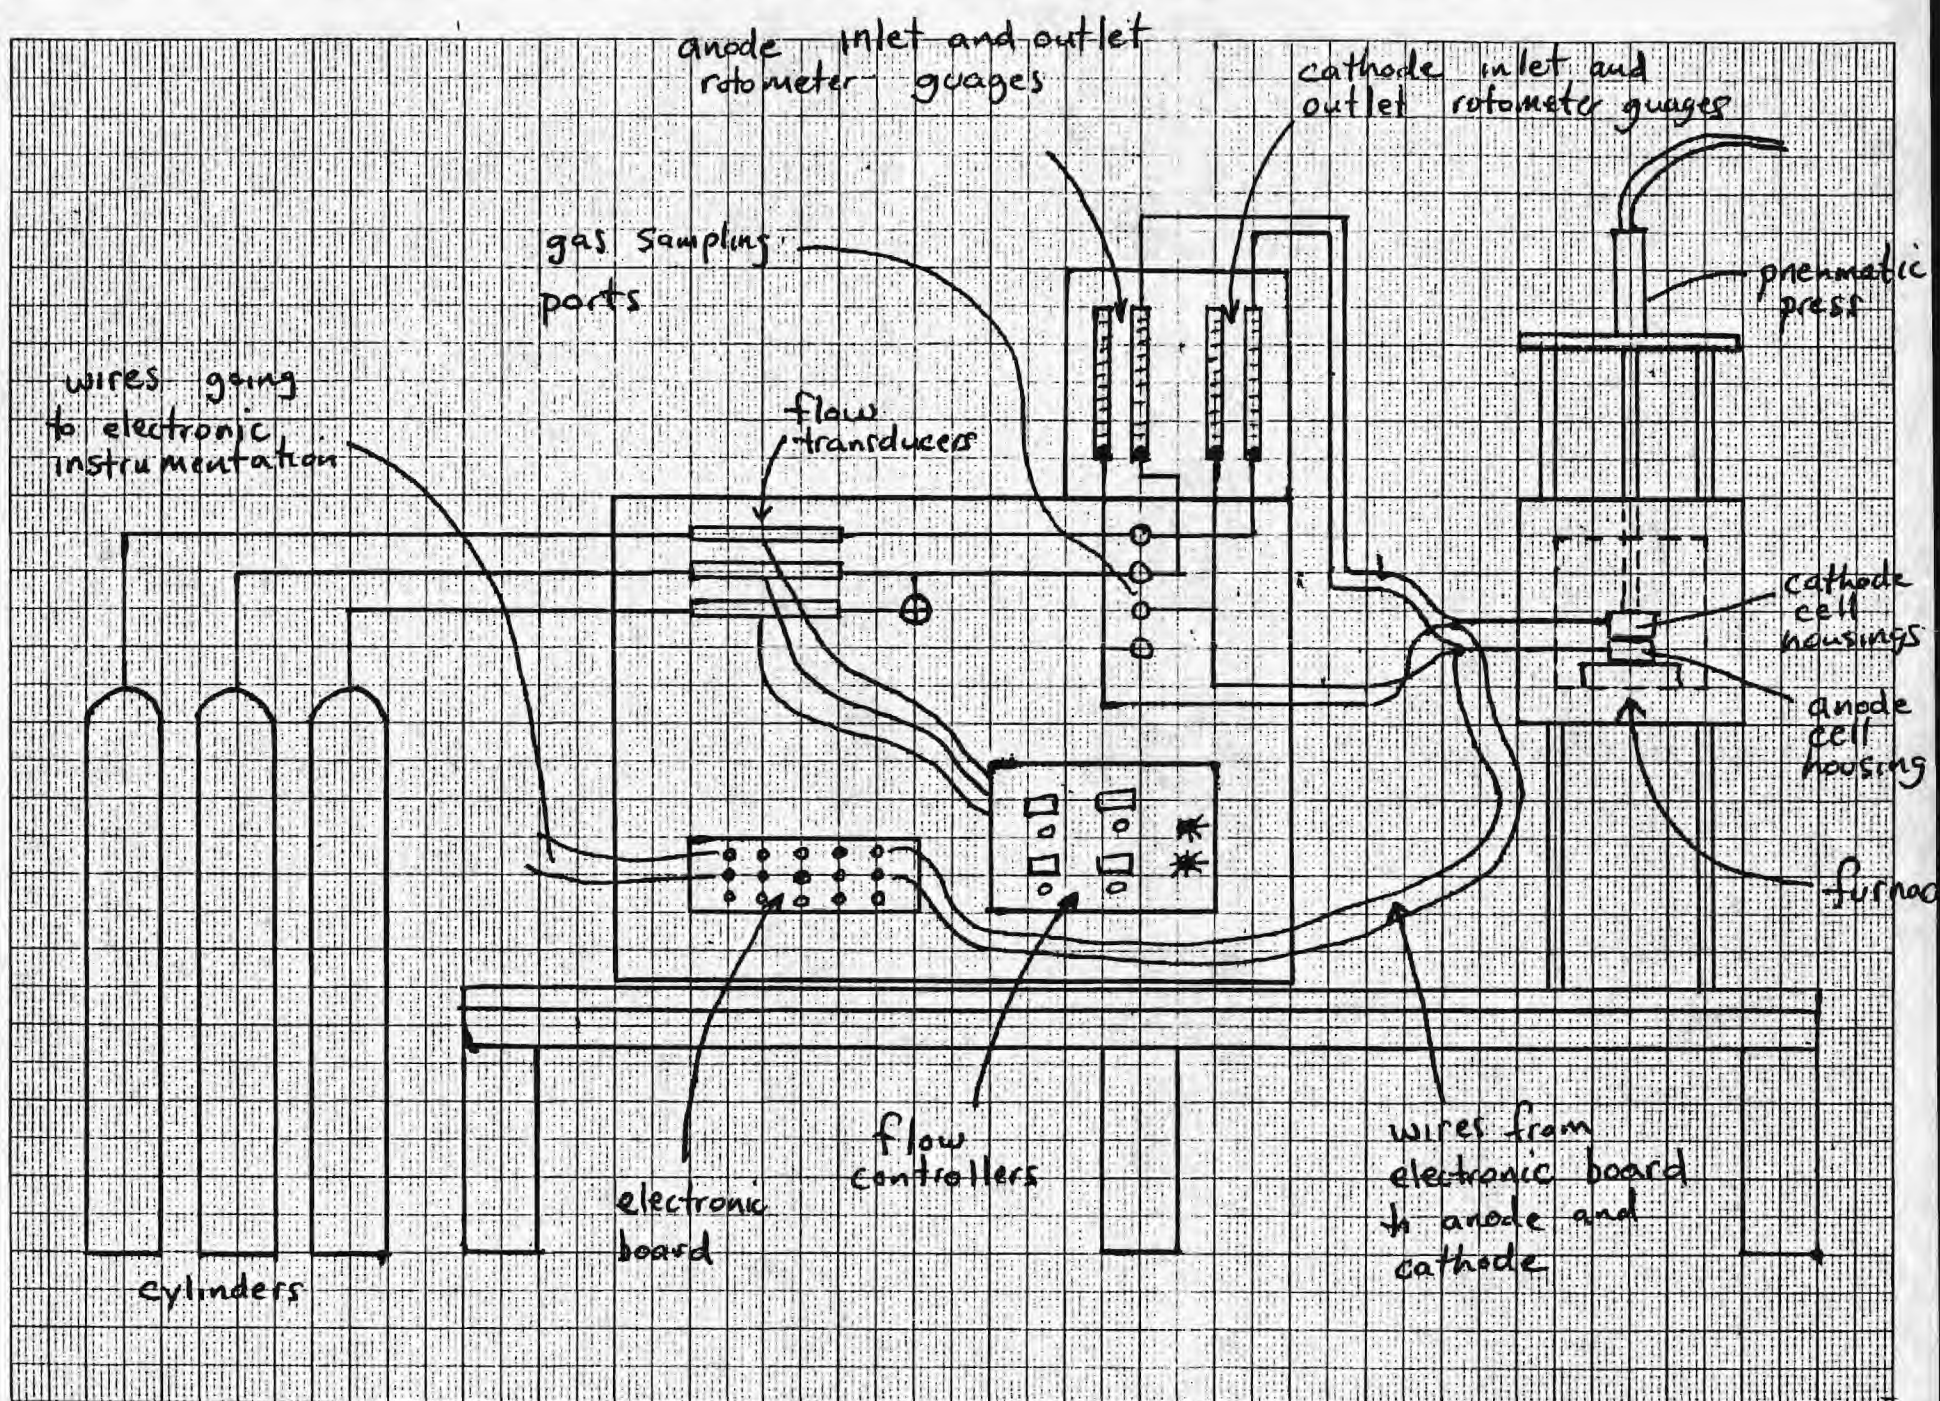 anode inlet and outlet
rotometer guages
cathode inlet and
outlet rotometer guages
gas sampling
ports
pneumatic
press
wires going
to electronic
instrumentation
flow
transducers
cathode
cell
housings
anode
cell
housing
furnac
electronic
board
flow
controllers
wires from
electronic board
to anode and
cathode
cylinders